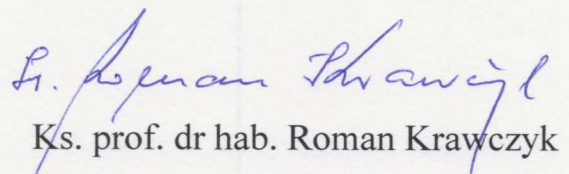 Ks. Roman Krawczyk
Ks. prof. dr hab. Roman Krawczyk